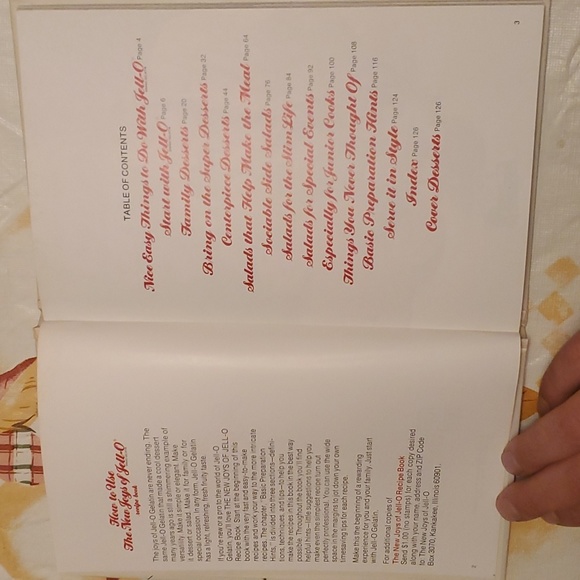 How to Use
The New Joys of Jell-O®
recipe book
The joys of Jell-O Gelatin are never ending. The
same Jell-O Gelatin that made a cool dessert
many years ago is still a shining example of
versatility. Make it simple or elegant. Make
a dessert or salad. Make it for family or for
special occasion. In any form, Jell-O Gelatin
has a light, refreshing, fresh fruity taste.
If you're new or a pro to the world of Jell-O
Gelatin, you'll find THE NEW JOYS OF JELL-O
Recipe Book. Start at the beginning of this
book with the very fast and easy-to-make
recipes and work your way to the more intricate
recipes. The chapter, Basic Preparation
Hints, is divided into three sections—defini-
tions, techniques, and tips—to help you
make the recipes in this book in the best way
possible. Throughout the book you'll find
helpful hints—some suggestions to help you
make even the simplest recipe turn out
perfectly every time. You can use the wide
space in the margins to jot down your own
timesaving tips for each recipe.
Make this the beginning of a rewarding
experience for you and your family. Just start
with Jell-O Gelatin.
For additional copies of
The New Joys of Jell-O Recipe Book
Send $1.00 (no stamps) for each copy desired
along with your name, address and ZIP Code
to: The New Joys of Jell-O
Box 3070, Kankakee, Illinois 60901.
2
TABLE OF CONTENTS
Nice Easy Things to Do With Jell-O® Page 4
Start with Jell-O® Page 6
Family Desserts Page 20
Bring on the Super Desserts Page 32
Centerpiece Desserts Page 44
Salads that Help Make the Meal Page 64
Sociable Side Salads Page 76
Salads for the Slim Life Page 84
Salads for Special Events Page 92
Especially for Junior Cooks Page 100
Things You Never Thought Of Page 108
Basic Preparation Hints Page 116
Serve it in Style Page 124
Index Page 126
Cover Desserts Page 126
3